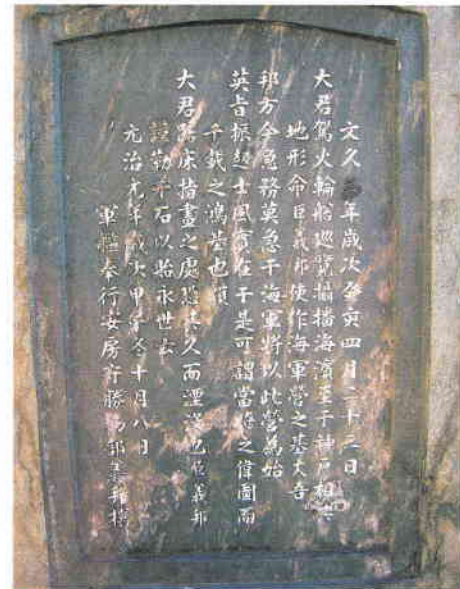 文久年歳次癸亥四月二十三日
大君駕火輪船巡覽攝播海濱至于神戸相其
地形命臣義邦使作海軍營之基夫吾
邦方今急務莫急于海軍將以此營為始
英旨振起士風實在于是可謂當時之偉圖而
千載之鴻基也
大君踞床指畫之處恐其久而湮没也臣義邦
謹勒于石以貽永世云
元治元年歳次甲子冬十月八日
軍艦奉行安房守勝物部義邦撰